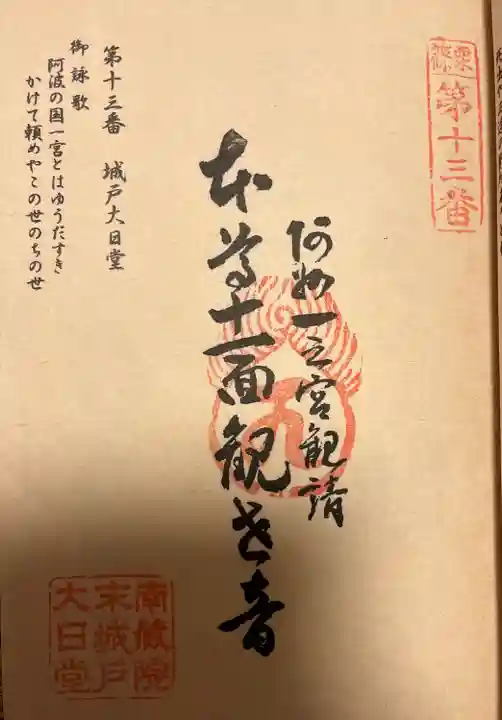 篠栗霊場
第十三番
阿州一之宮観請
本尊十一面観世音
第十三番 城戸大日堂
御詠歌
阿波の国一宮とはゆうだすき
かけて頼めやこの世のちの世
南蔵院
末城戸
大日堂